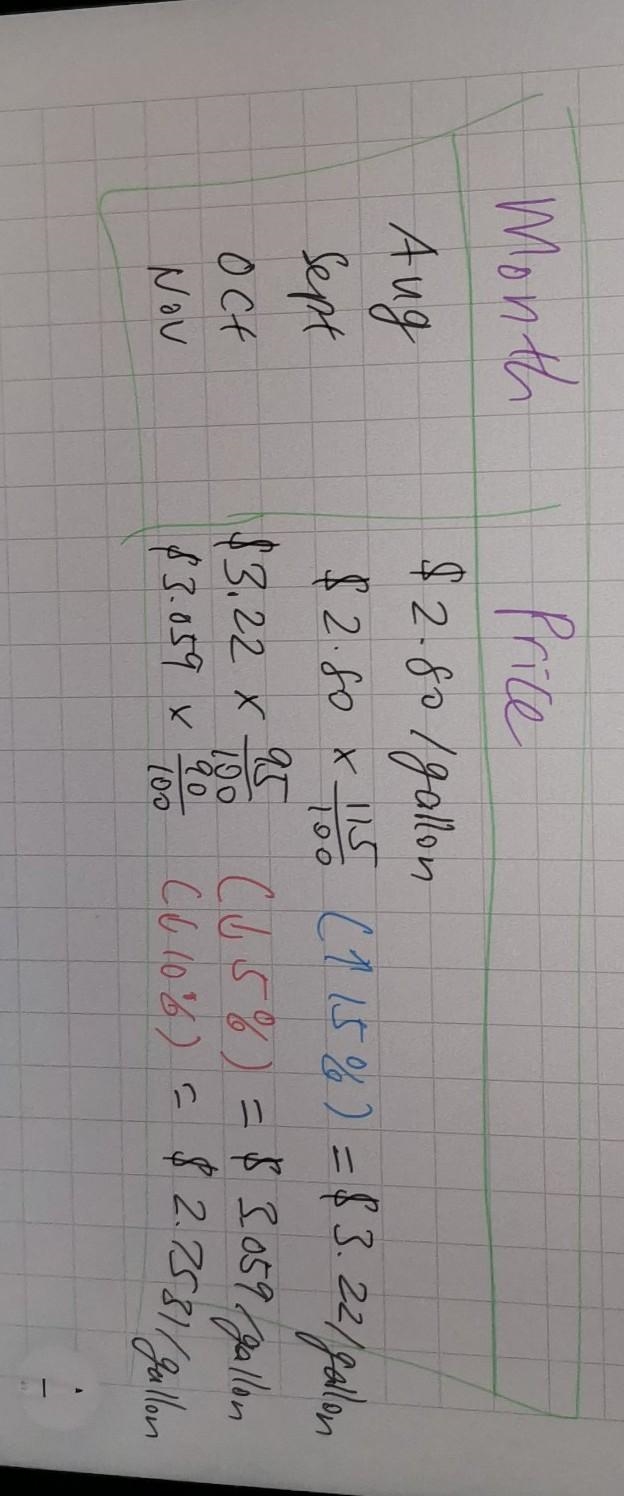 Month Price
Aug $2.80/gallon
Sept $2.80 x 115/100 (↑ 15%) = $3.22/gallon
Oct $3.22 x 95/100 (↓ 5%) = $3.059/gallon
Nov $3.059 x 90/100 (↓ 10%) = $2.7531/gallon